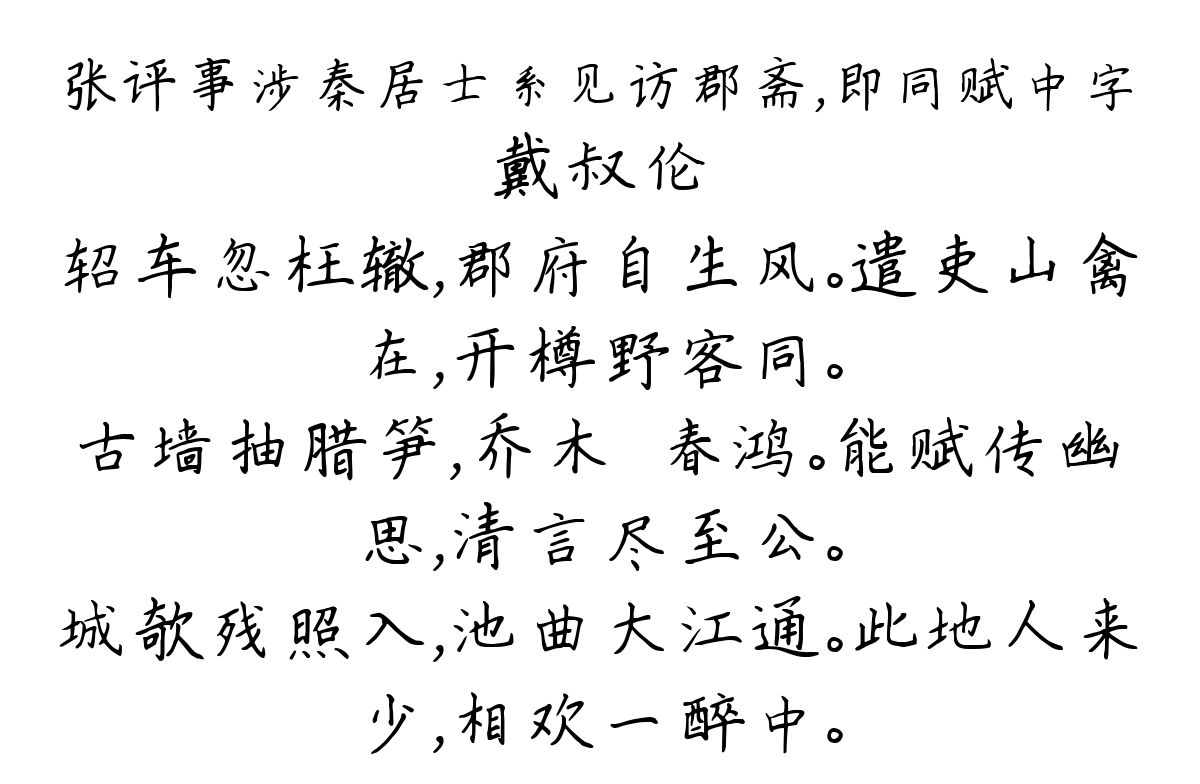 张评事涉秦居士系见访郡斋,即同赋中字
戴叔伦
轺车忽枉辙,郡府自生风。遣吏山禽
在,开樽野客同。
古墙抽腊笋,乔木 春鸿。能赋传幽
思,清言尽至公。
城欹残照入,池曲大江通。此地人来
少,相欢一醉中。